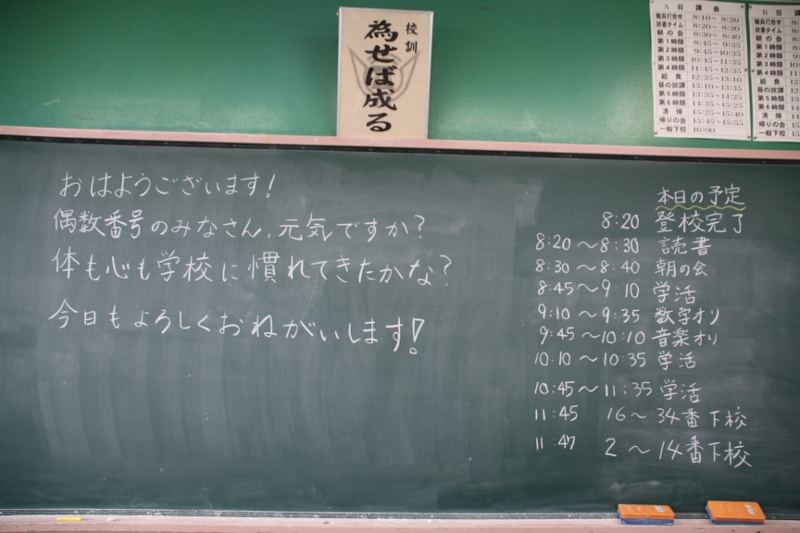 校訓
為せば成る
おはようございます!
偶数番号のみなさん、元気ですか?
体も心も学校に慣れてきたかな?
今日もよろしくおねがいします!
本日の予定
8:20 登校完了
8:20〜8:30 読書
8:30〜8:40 朝の会
8:45〜9:10 学活
9:10〜9:35 数学オリ
9:45〜10:10 音楽オリ
10:10〜10:35 学活
10:45〜11:35 学活
11:45 16〜34番下校
11:47 2〜14番下校
A日課表
職員打合せ 8:10〜8:20
読書タイム 8:20〜8:30
朝の会 8:30〜8:40
第1時限 8:45〜9:35
第2時限 9:45〜10:35
第3時限 10:45〜11:35
第4時限 11:45〜12:35
給食 12:35〜13:10
昼の放課
第5時限 13:35〜14:25
第6時限 14:35〜15:25
清掃 15:25〜15:40
帰りの会 15:45〜15:55
一般下校 16:00
B日課表
職員打合せ
読書タイム
朝の会
第1時限
第2時限
第3時限
第4時限
給食
昼の放課
第5時限
第6時限
清掃
帰りの会
一般下校